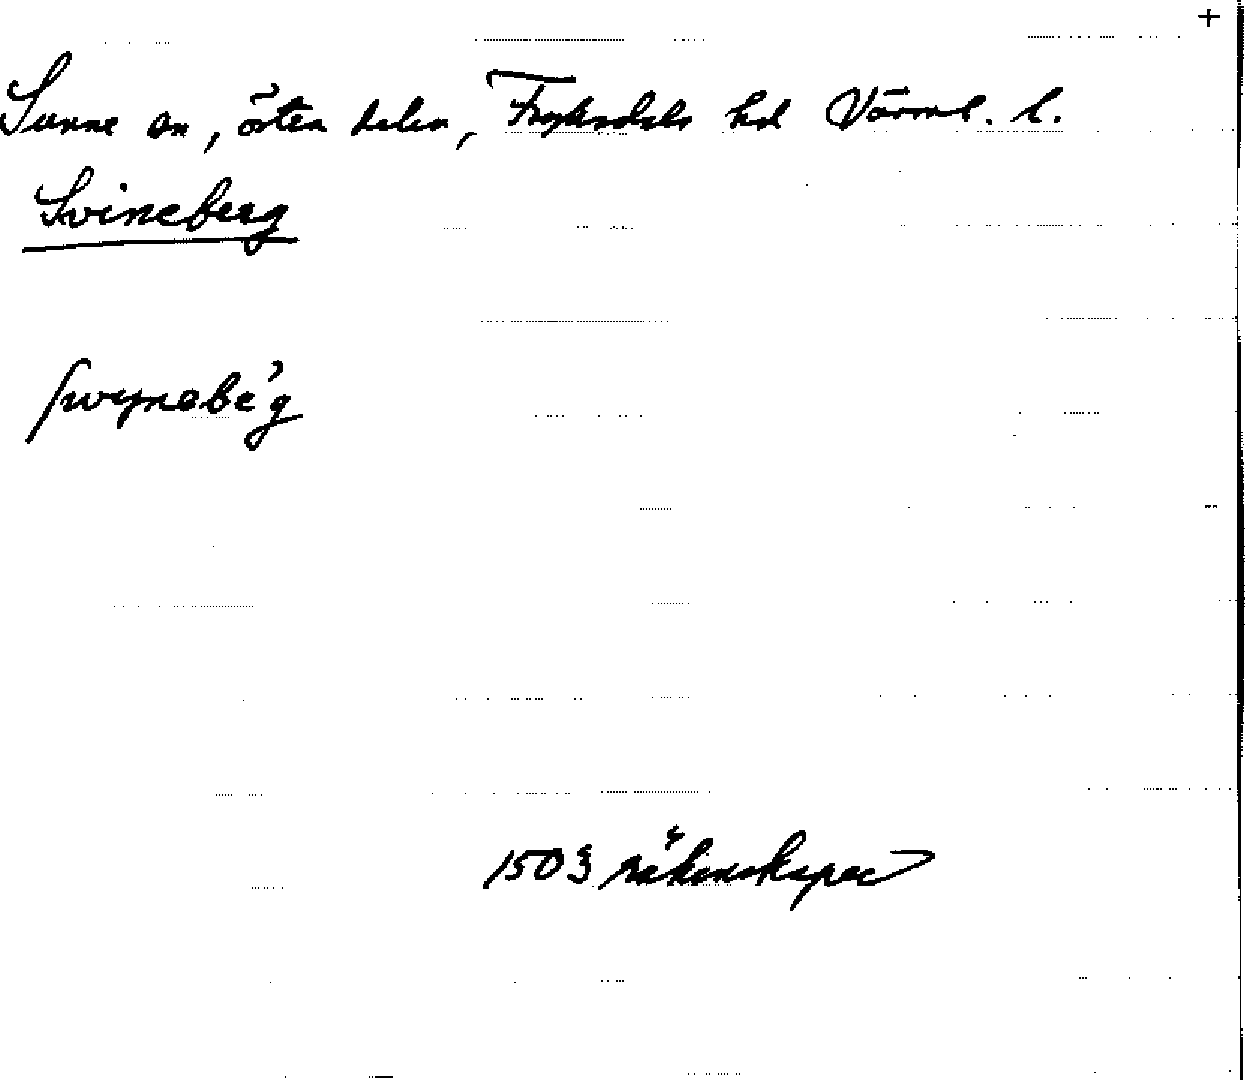 +
Sunne sn, östra delen, Fryksdals hd Värml. l.
Svineberg
swynebe'g
1503 räkenskaper